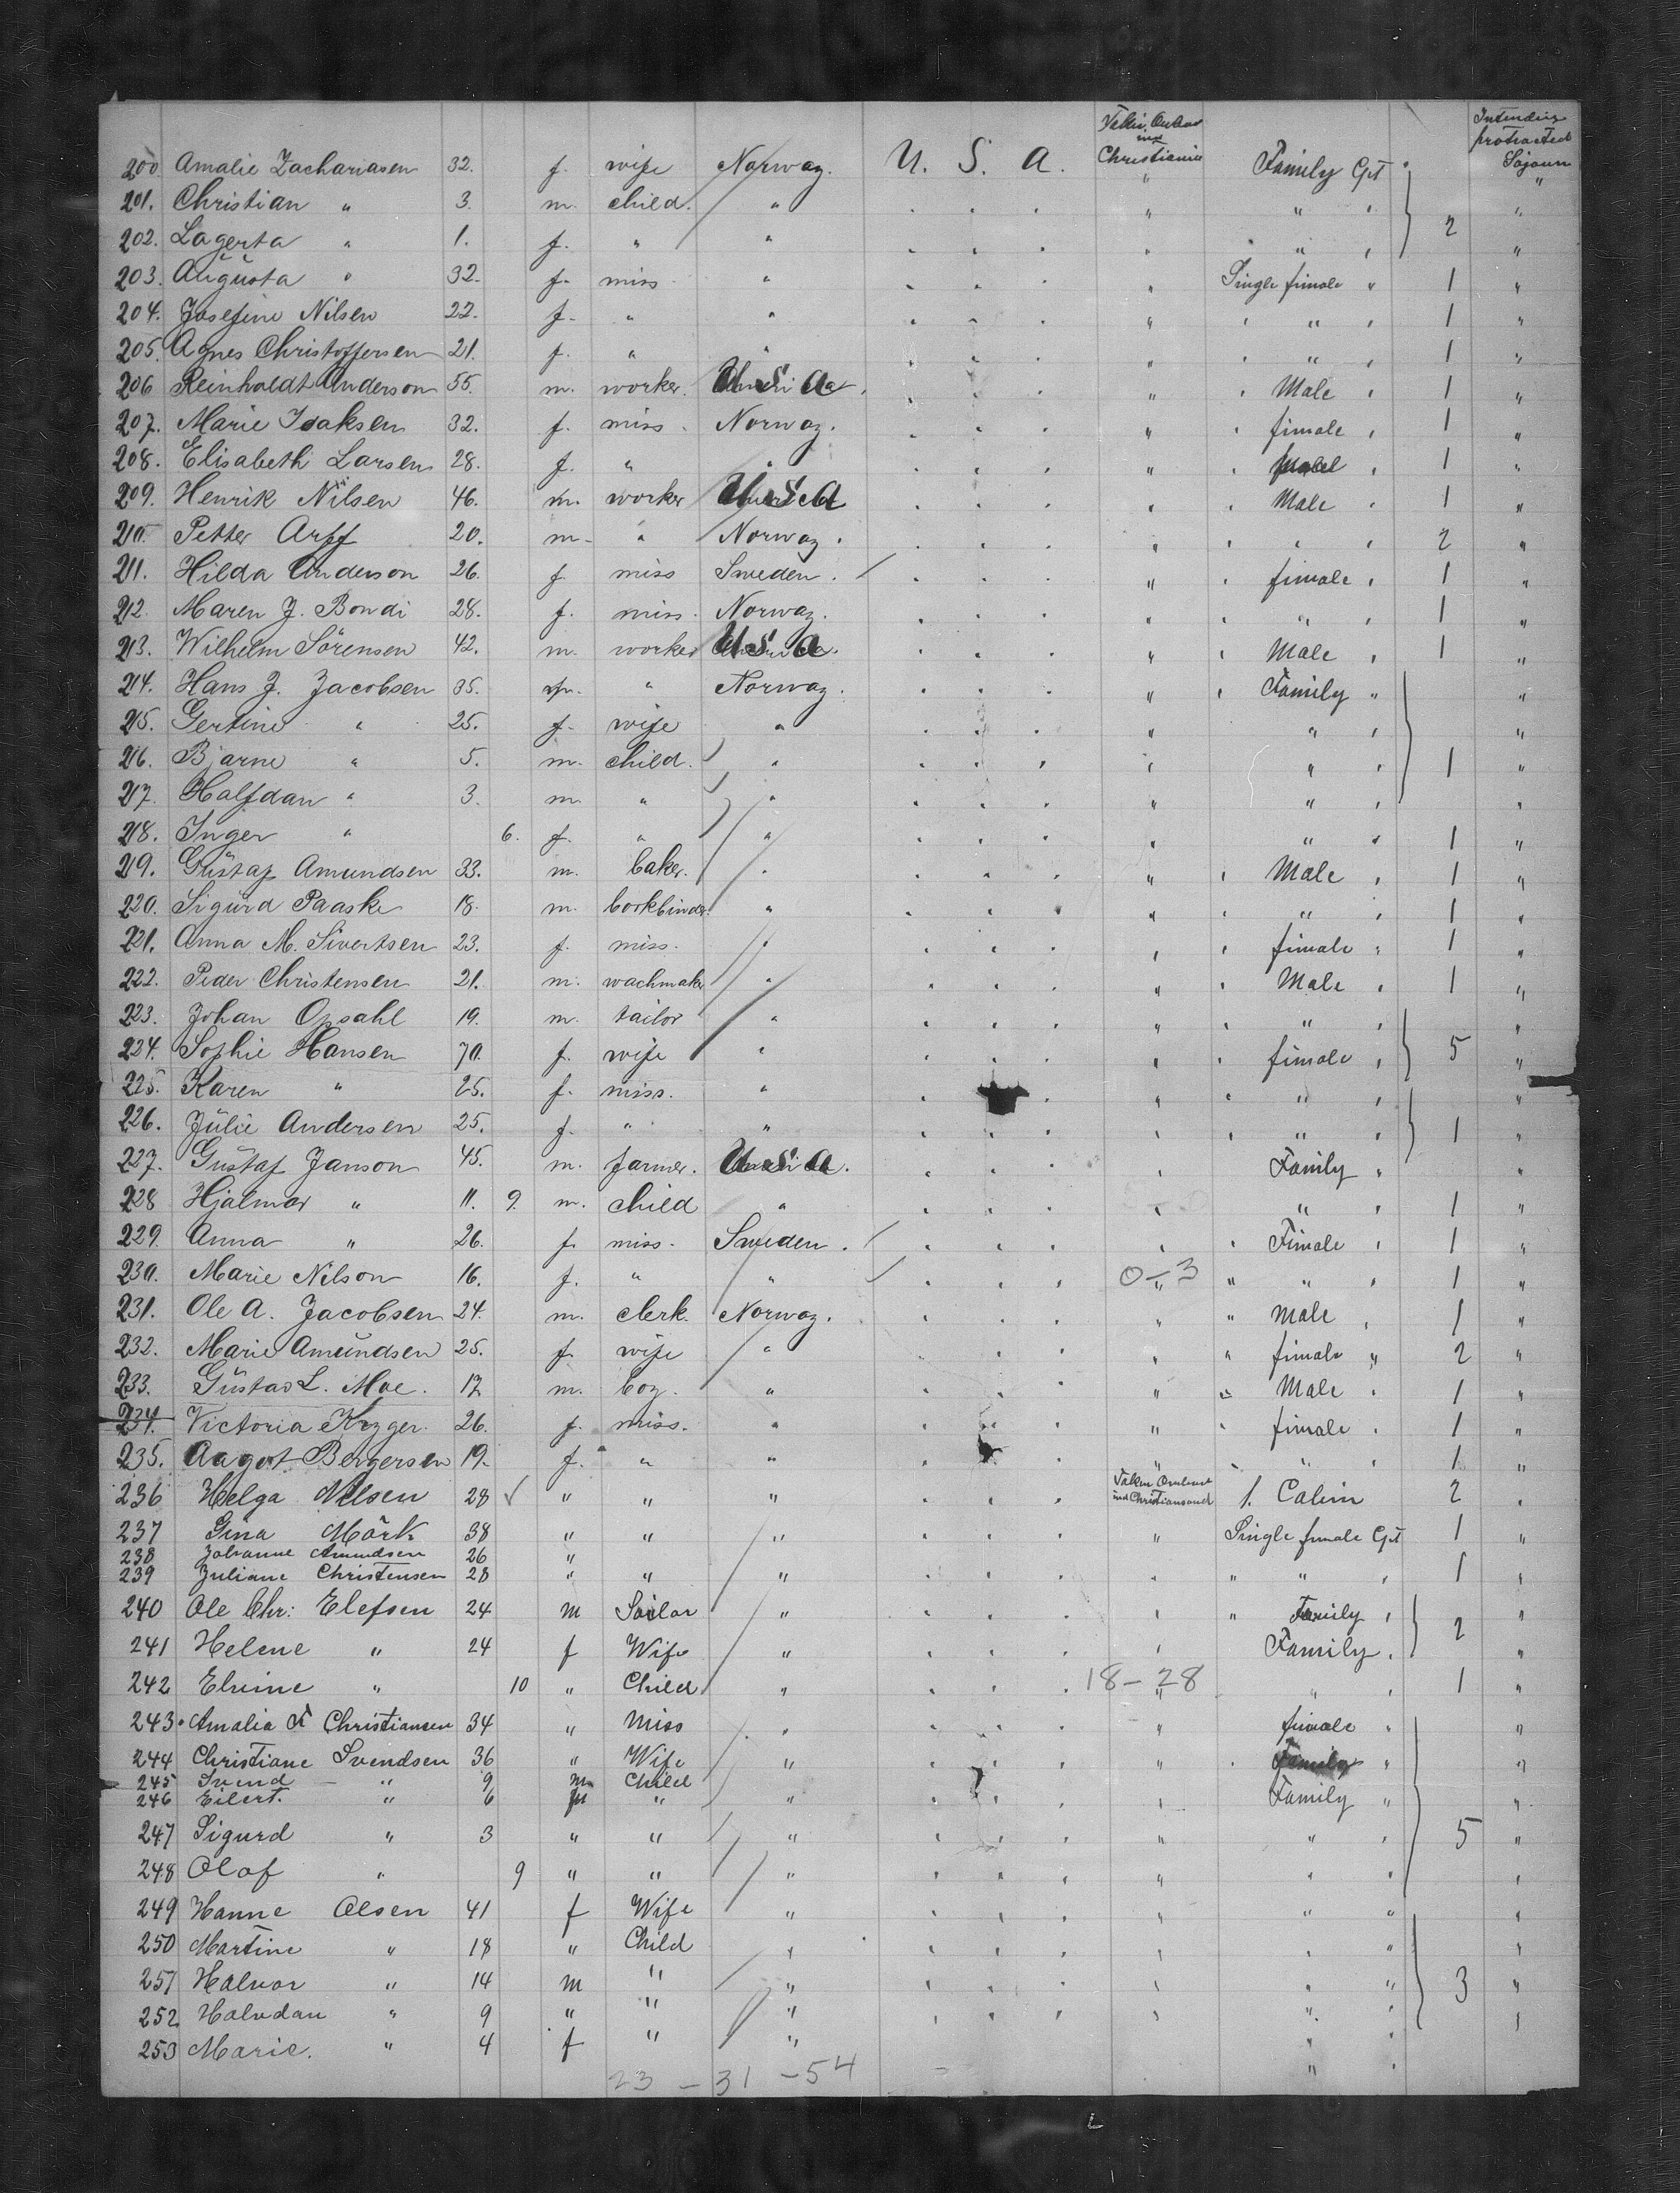 Intending
protracted
Sojourn
Christiania
200 Amalie Zachariasen 32. f. wife Norway. U. S. A. " Family Cpt "
201. Christian " 3. m. child. " . . . " " " "
202. Lagerta " 1. f. " " . . . " " " 2 "
203. Augusta " 32. f. miss " . . . " Single fimale " 1 "
204. Josefine Nilsen 22. f. " " . . . " " " " 1 "
205. Agnes Christoffersen 21. f. " " . . . " " " " 1 "
206 Reinholdt Anderson 55. m. worker. U S A . . . " " Male " 1 "
207. Marie Isaksen 32. f. miss Norway. . . . " " fimale " 1 "
208. Elisabeth Larsen 28. f. " " . . . " " " 1 "
209. Henrik Nilsen 46. m. worker U S A . . . " " Male " 1 "
210. Petter Arff 20. m. " Norway. . . . " " " " 2 "
211. Hilda Anderson 26. f. miss Sweden. . . . " " fimale " 1 "
212. Maren J. Bondi 28. f. miss. Norway. . . . " " " " 1 "
213. Wilhelm Sörensen 42. m. worker U S A . . . " " Male " 1 "
214. Hans J. Jacobsen 35. m. " Norway. . . . " " Family " "
215. Gertine " 25. f. wife " . . . " " " "
216. Bjarne " 5. m. child. " . . . " " " 1 "
217. Halfdan " 3. m. " " . . . " " " "
218. Inger " 6. f. " " . . . " " " 1 "
219. Gustaf Amundsen 33. m. baker. " . . . " " Male " 1 "
220. Sigurd Paaske 18. m. bookbinder " . . . " " " " 1 "
221. Anna M. Sivertsen 23. f. miss. " . . . " " fimale " 1 "
222. Peder Christensen 21. m. wachmaker " . . . " " Male " 1 "
223. Johan Opsahl 19. m. tailor " . . . " " " " "
224. Sophie Hansen 70. f. wife " . . . " " fimale " 5 "
225. Karen " 25. f. miss. " . . . " " " " "
226. Julie Andersen 25. f. " " . . . " " " " 1 "
227. Gustaf Janson 45. m. farmer. U S A . . . " Family " "
228 Hjalmar " 11. 9. m. child " . . . " " " 1 "
229. Anna " 26. f. miss. Sweden. . . . " " Fimale " 1 "
230. Marie Nilson 16. f. " " . . . 0-3 " " " 1 "
231. Ole A. Jacobsen 24. m. clerk. Norway. . . . " " male " 1 "
232. Marie Amundsen 25. f. wife " . . . " " fimale " 2 "
233. Gustav L. Moe. 17. m. boy. " . . . " " Male " 1 "
234. Victoria Kryger. 26. f. miss. " . . . " " fimale " 1 "
235. Aagot Bergersen 19. f. " " . . . " " " " 1 "
236 Helga Nilsen 28 " " " . . . ind Christiansand 1. Cabin 2 "
237 Gina Mörk 38 " " " . . . " Single fimale Cpt 1 "
238 Johanne Amundsen 26 "
239 Juliane Christensen 28 " " " . . . " " " " 1 "
240 Ole Chr: Elefsen 24 m Sailor " . . . " " Family " "
241 Helene " 24 f Wife " . . . " Family " 2 "
242 Elvine " 10 " Child " . . . 18-28 " " 1 "
243 Amalia F Christiansen 34 " Miss " . . . " fimale " "
244 Christiane Svendsen 36 " Wife " . . . " " Family " "
245 Svend " 9 m Child
246 Eilert. " 6 m " " . . . " Family " "
247 Sigurd " 3 " " " . . . " " " 5 "
248 Olaf " 9 " " " . . . " " " "
249 Hanne Olsen 41 f Wife " . . . " " " "
250 Martine " 18 " Child " . . . " " " "
251 Halvor " 14 m " " . . . " " " 3 "
252 Halvdan " 9 " " " . . . " " " "
253 Marie. " 4 f " " " "
23 - 31 - 54